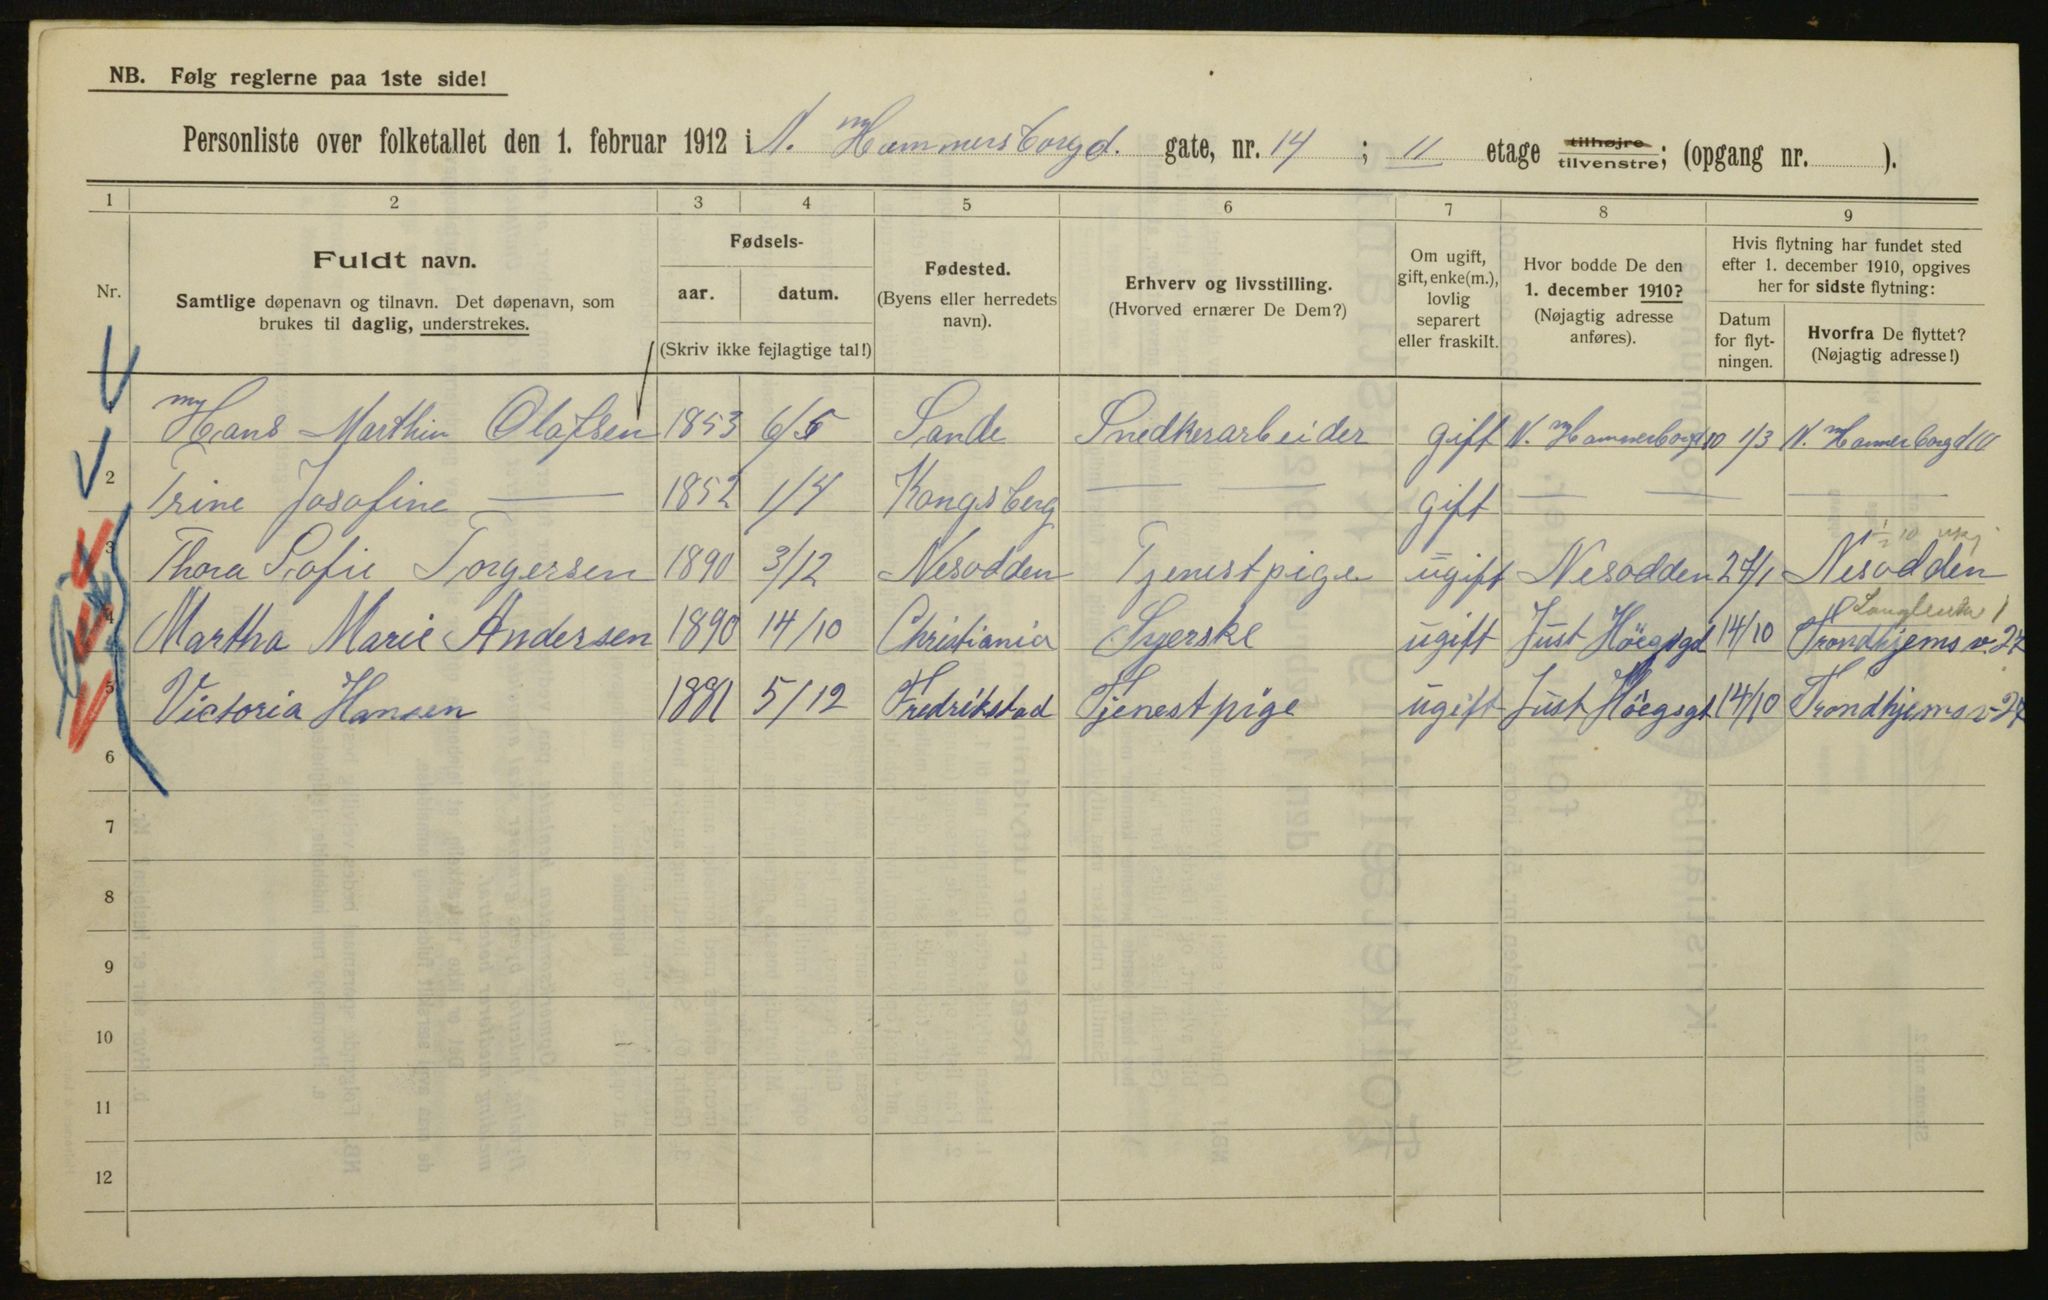 NB. Følg reglerne paa 1ste side!
Personliste over folketallet den 1. februar 1912 i N. Hammersborgd. gate, nr. 14 ; II etage tilhøjre tilvenstre; (opgang nr. ).
1 2 3 4 5 6 7 8 9
Nr.
Fuldt navn.
Samtlige døpenavn og tilnavn. Det døpenavn, som
brukes til daglig, understrekes.
Fødsels-
aar. datum.
(Skriv ikke fejlagtige tal!)
Fødested.
(Byens eller herredets
navn).
Erhverv og livsstilling.
(Hvorved ernærer De Dem?)
Om ugift,
gift, enke(m.),
lovlig
separert
eller fraskilt.
Hvor bodde De den
1. december 1910?
(Nøjagtig adresse
anføres).
Hvis flytning har fundet sted
efter 1. december 1910, opgives
her for sidste flytning:
Datum
for flyt-
ningen.
Hvorfra De flyttet?
(Nøjagtig adresse!)
1 Hans Marthin Olafsen 1853 6/5 Sande Snedkerarbeider gift N. Hammerborgd 10 1/3 N. Hammerborgd 10
2 Trine Josofine — 1852 1/4 Kongsberg — — gift — — —
3 Thora Sofie Torgersen 1890 3/12 Nesodden Tjenestpige ugift Nesodden 27/1 Nesodden
4 Martha Marie Andersen 1890 14/10 Christiania Syerske ugift Just Höegsgd 14/10 Trondhjems v. 27
5 Victoria Hansen 1881 5/12 Fredrikstad Tjenestpige ugift Just Höegsgt 14/10 Trondhjems v- 27
6
7
8
9
10
11
12